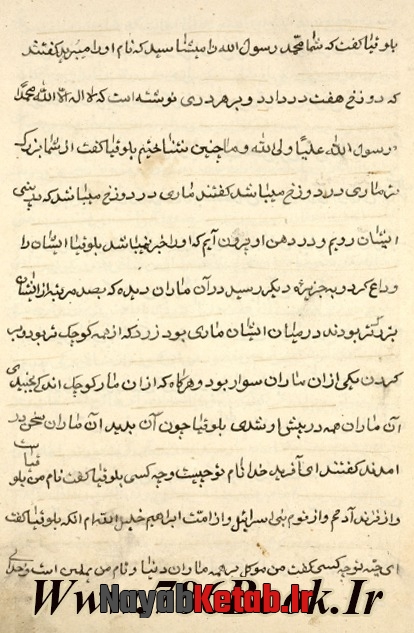 بلوقیا کفت که شما محمد رسول الله را میشناسید که نام او را میبرید کفتند
که دوزخ هفت در دارد و بر هر دری نوشته است که لا اله الا الله محمدا
رسول الله علیا ولی الله و ما چنین شناختیم بلوقیا کفت از شما بزرک
تر ماری در دوزخ میباشد کفتند ماری در دوزخ میباشد که به بینی
ایشان رویم و در دهن او بیرون آیم که او را خبر نمیباشد بلوقیا ایشان را
وداع کرد و به جزیره دیکر رسید در آن ماران دیدە که بصد مرتبه از ایشان
بزرکتر بودند در میان ایشان ماری بود زرد که از همه کوچک تر بود و بر
کردن یکی از ان ماران سوار بود و هرکاه که از ان مار کوچک اندک جنبیدی
آن ماران همه در پیش او شدی بلوقیا چون آن بدید آن ماران بسخن در
امدند کفتند ای آفریده خدا نام تو چیست و چه کسی بلوقیا کفت نام من بلوقیاست
و از فرزند آدمم و از قوم بنی اسرائیل و از امت ابراهیم خلیل الله ام انکه بلوقیا کفت
ای تو چه کسی کفت من موکل بر همه ماران دنیا و نام من است
Www.786Book.Ir
NayabKetab.Ir